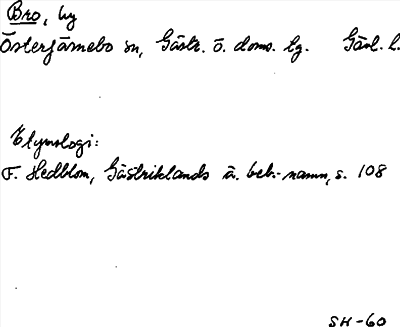 Bro, by
Österfärnebo sn, Gästr. ö. doms. lg. Gävl. l.
Etymologi:
F. Hedblom, Gästriklands ä. beb.-namn, s. 108
SH-60